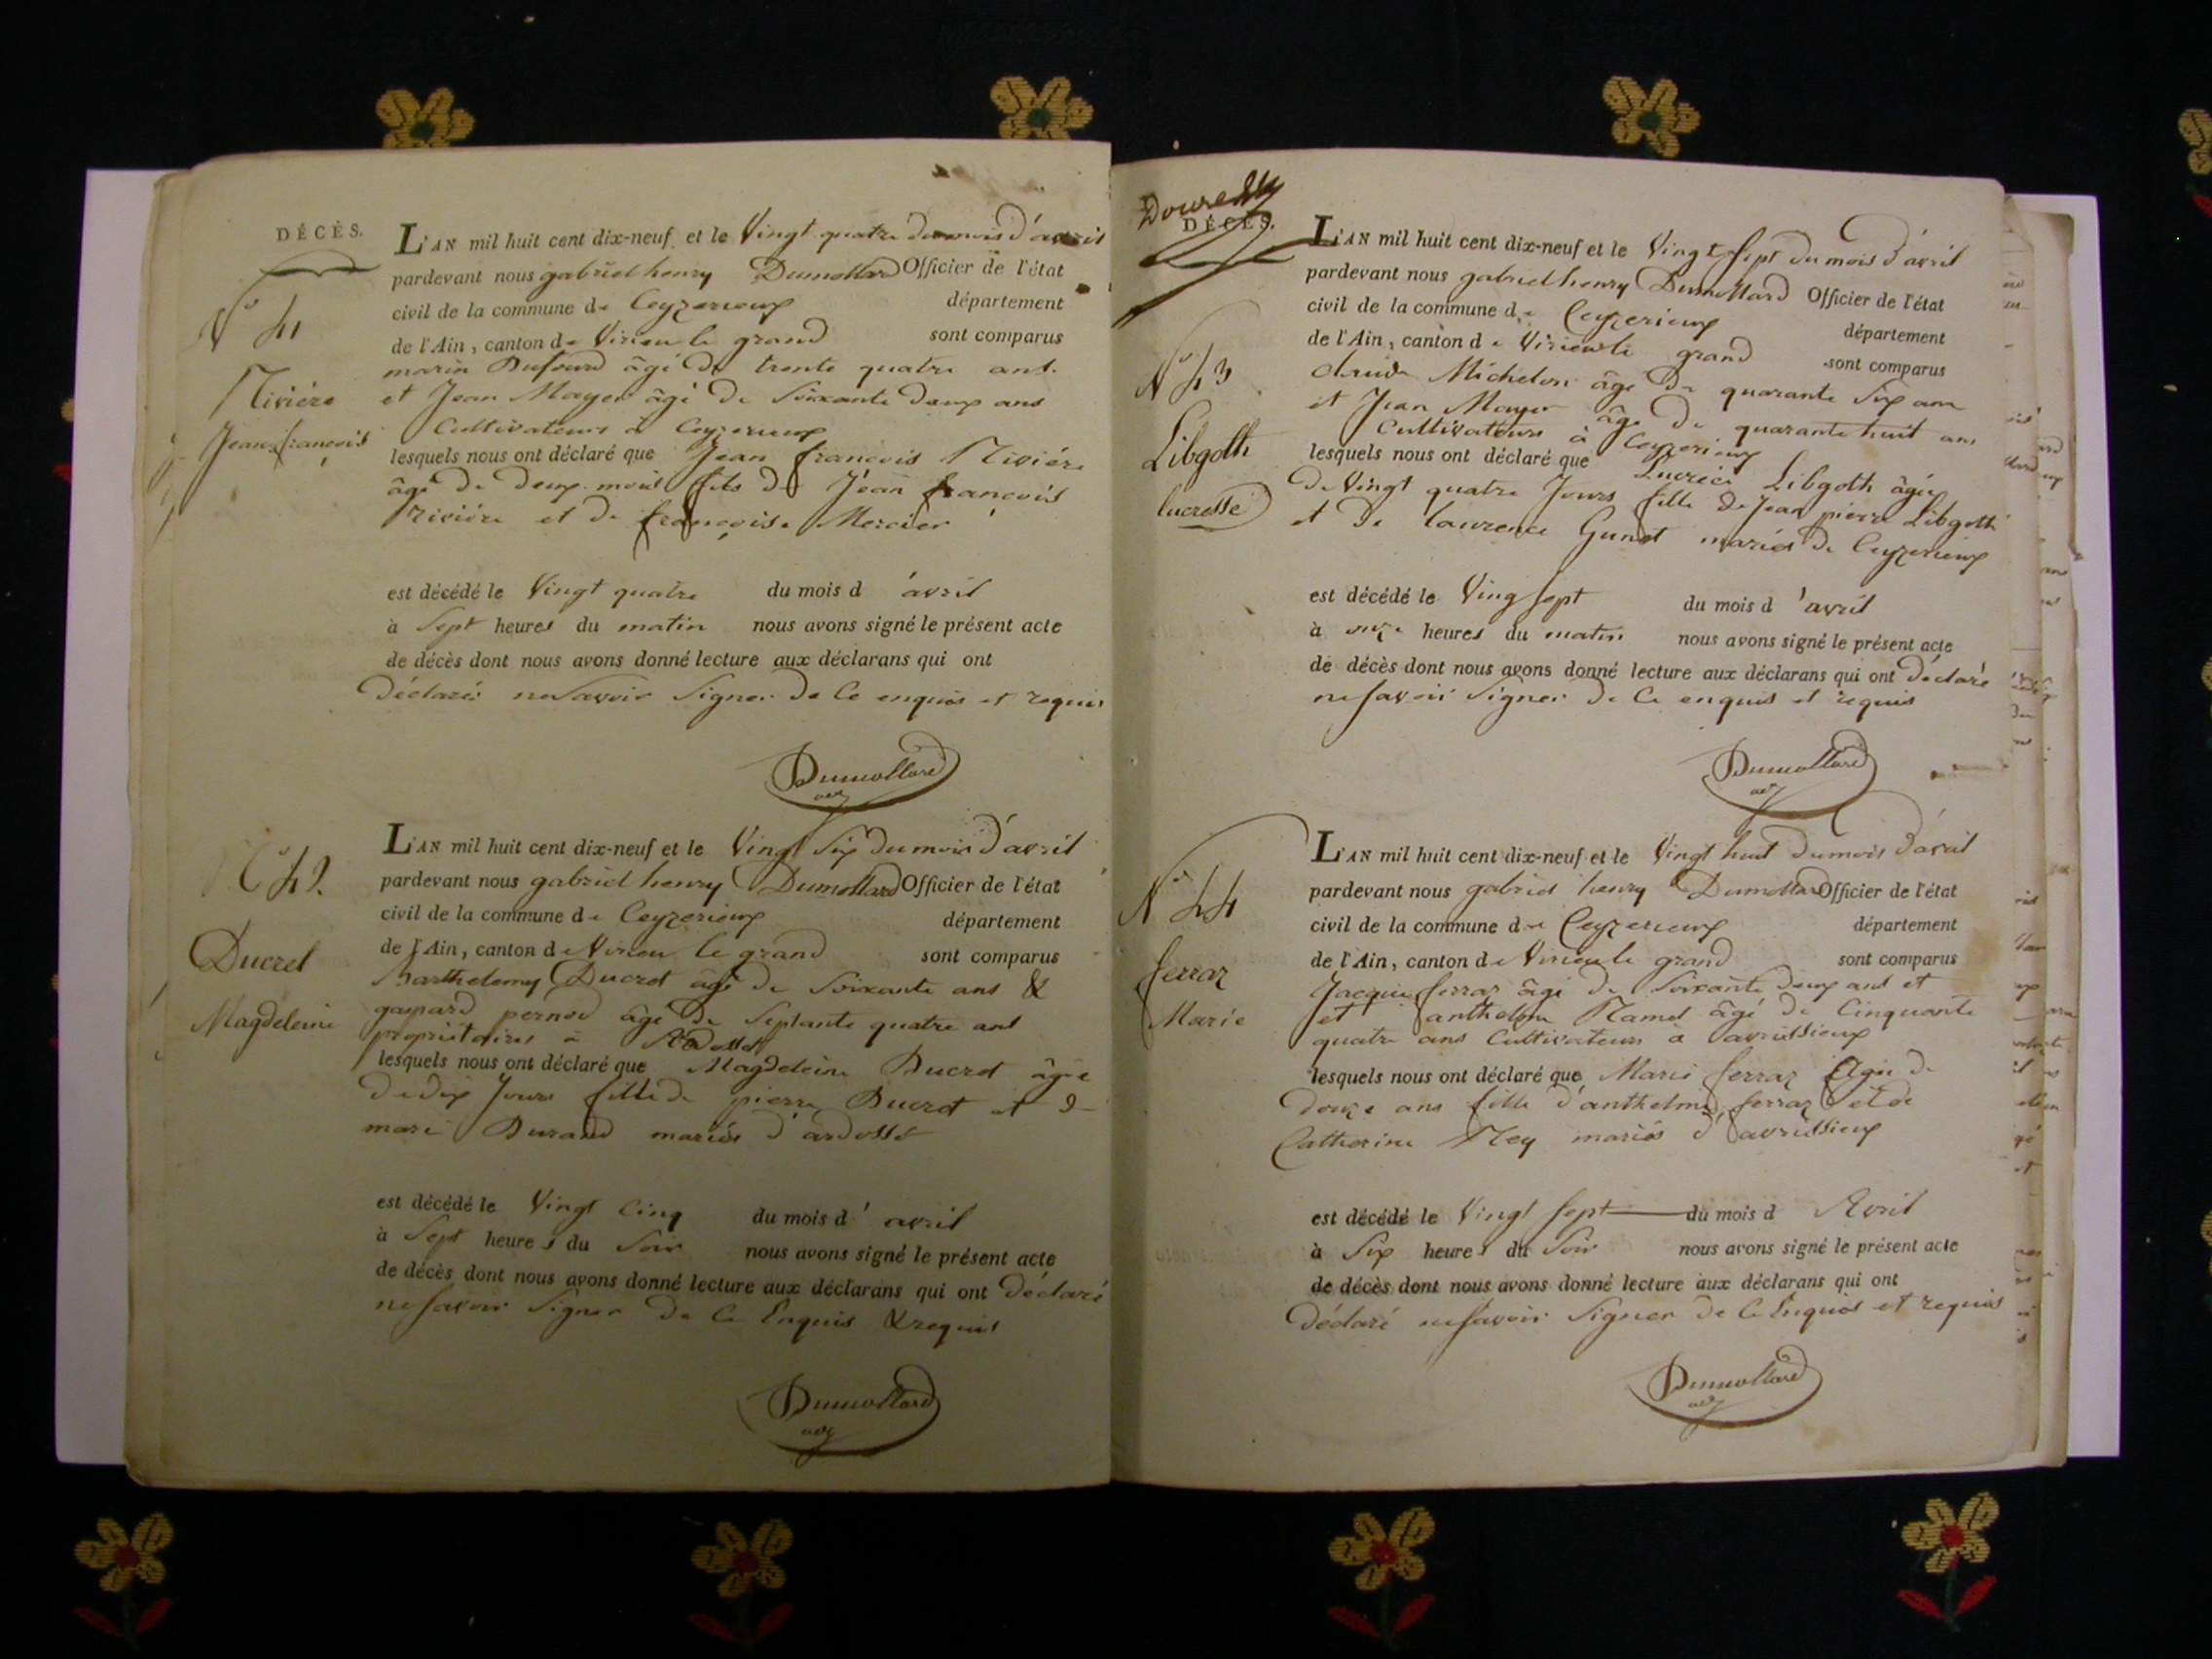 DÉCÈS.
N° 41
Rivière
Jean françois
L'AN mil huit cent dix-neuf et le Vingt quatre du mois d'avril
pardevant nous gabriel henry Dumollard Officier de l'état
civil de la commune de Ceyzerieux département
de l'Ain, canton de Virieu le grand sont comparus
marin Dufourd âgé De trente quatre ans
et Jean Mayer âgé De Soixante Deux ans
Cultivateurs à Ceyzerieux
lesquels nous ont déclaré que Jean françois Rivière
âgé De Deux mois fils De Jean françois
rivière et De françoise Mercier
est décédé le Vingt quatre du mois d'avril
à Sept heures du matin nous avons signé le présent acte
de décès dont nous avons donné lecture aux déclarans qui ont
Déclarés ne Savoir Signer De Ce enquis et requis
Dumollard
adj
42
Ducret
Magdeleine
L'AN mil huit cent dix-neuf et le Vingt Six du mois d'avril
pardevant nous gabriel henry Dumollard Officier de l'état
civil de la commune de Ceyzerieux département
de l'Ain, canton de Virieu le grand sont comparus
Barthelemy Ducret âgé De Soixante ans &
gaspard pernod âgé De Septante quatre ans
propriétaires à Ardosset
lesquels nous ont déclaré que Magdeleine Ducret âgée
De dix Jours fille de pierre Ducret et De
marie Durand mariés d'ardosset
est décédé le Vingt Cinq du mois d'avril
à Sept heures du Soir nous avons signé le présent acte
de décès dont nous avons donné lecture aux déclarans qui ont Déclaré
ne Savoir Signer De Ce Enquis & requis
Dumollard
adj
DÉCÈS.
N° 43
Libgoth
lucresse
L'AN mil huit cent dix-neuf et le Vingt Sept du mois d'avril
pardevant nous gabriel henry Dumollard Officier de l'état
civil de la commune de Ceyzerieux département
de l'Ain, canton de Virieu le grand sont comparus
claude Michelon âgé De quarante Six ans
et Jean Mayer âgé De quarante huit ans
Cultivateurs à Ceyzerieux
lesquels nous ont déclaré que Lucrèce Libgoth âgée
De Vingt quatre Jours fille De Jean pierre Libgoth
et De laurence Gunet mariés De Ceyzerieux
est décédé le Ving Sept du mois d'avril
à onze heures du matin nous avons signé le présent acte
de décès dont nous avons donné lecture aux déclarans qui ont Déclaré
ne Savoir Signer De Ce enquis et requis
Dumollard
adj
N° 44
ferraz
Marie
L'AN mil huit cent dix-neuf et le Vingt huit du mois d'avril
pardevant nous gabriel henry Dumollard Officier de l'état
civil de la commune de Ceyzerieux département
de l'Ain, canton de Virieu le grand sont comparus
Jacques ferraz âgé De Soixante Deux ans et
et anthelme Ramel âgé De Cinquante
quatre ans Cultivateurs à avrissieux
lesquels nous ont déclaré que Marie ferraz Agée de
Douze ans fille d'anthelme ferraz et de
Catherine Rey mariés d'avrissieux
est décédé le Vingt Sept du mois d Avril
à Six heures du Soir nous avons signé le présent acte
de décès dont nous avons donné lecture aux déclarans qui ont
Déclaré ne Savoir Signer De Ce Enquis et requis
Dumollard
adj